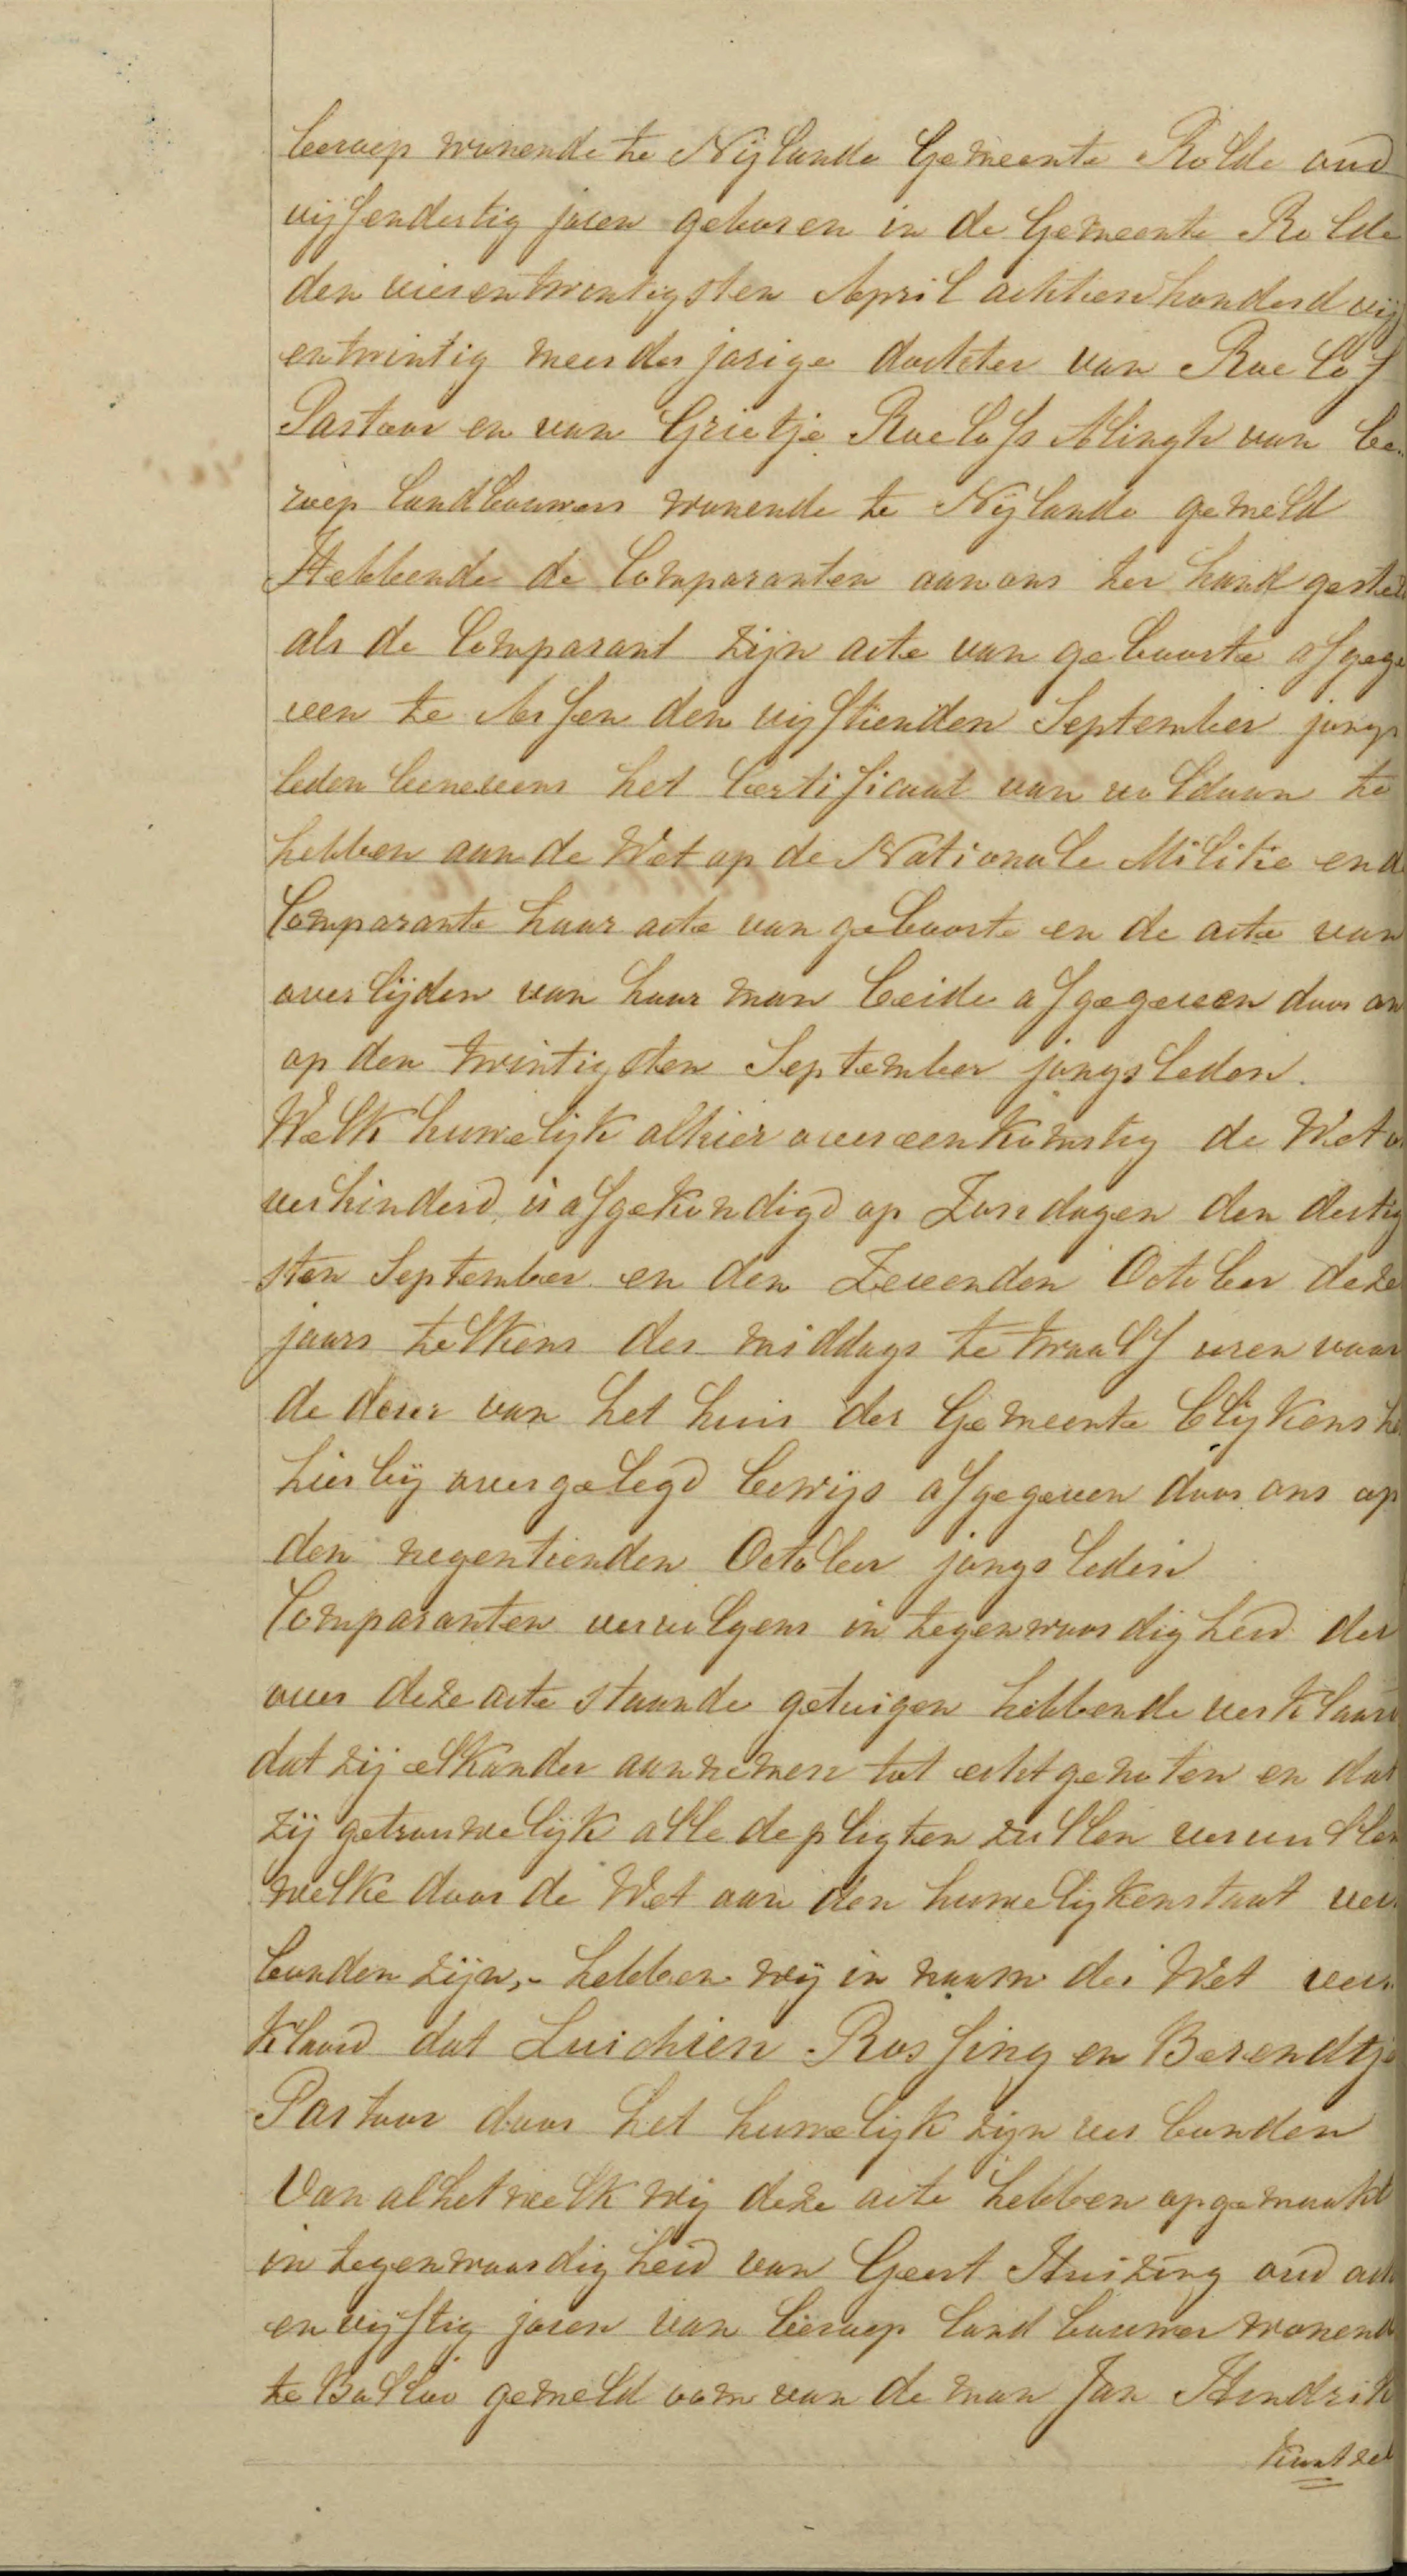 beroep wonende te Nijlande Gemeente Rolde oud
vijfendertig jaren geboren in de Gemeente Rolde
den vierentwintigsten April achttienhonderd vijf
entwintig meerderjarige dochter van Roelof
Pastoor en van Grietje Roelofs Alingh van be
roep landbouwers wonende te Nijlande gemeld
Hebbende de Comparanten aan ons ter hand gesteld
als de Comparant zijn acte van geboorte afgege
ven te Assen den vijftienden September jongs
leden benevens het Certificaat van voldaan te
hebben aan de Wet op de Nationale Militie en de
Comparante haar acte van geboorte en de acte van
overlijden van haar man beide afgegeven door ons
op den twintigsten September jongsleden.
Welk huwelijk alhier overeenkomstig de Wet
verhinderd is afgekondigd op Zondagen den dertig
sten September en den Zevenden October dezes
jaars telkens des middags te twaalf uren voor
de deur van het huis der Gemeente blijkens het
hierbij overgelegd bewijs afgegeven door ons op
den negentienden October jongsleden
Comparanten vervolgens in tegenwoordigheid der
over deze acte staande getuigen hebbende verklaard
dat zij elkander aannemen tot echtgenoten en dat
zij getrouwelijk alle de pligten zullen vervullen
welke door de Wet aan den huwelijkenstaat ver
bonden zijn,- hebben wij in naam der Wet ver
klaard dat Luichien Rossing en Berendtje
Pastoor door het huwelijk zijn verbonden
Van al hetwelk wij deze acte hebben opgemaakt
in tegenwoordigheid van Geert Huizing oud acht
en vijftig jaren van beroep landbouwer wonende
te Balloo gemeld oom van de man Jan Hendrik